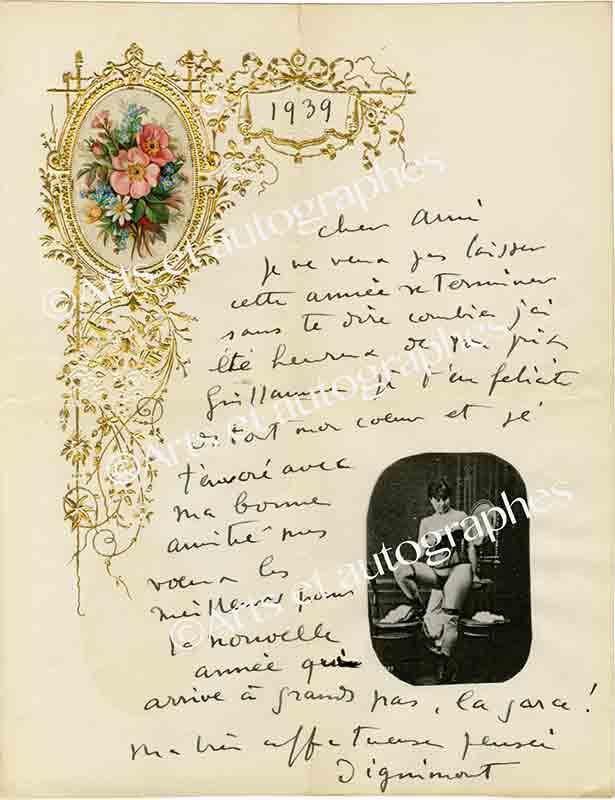 1939
cher Ami
je ne veux pas laisser
cette année se terminer
sans te dire combien j'ai
été heureux de ton prix
Guillaume je t'en felicite
de tout mon coeur et je
t'envoie avec
ma bonne
amitié mes
voeux les
meilleurs pour
la nouvelle
année qui
arrive à grands pas, la garce !
ma très affectueuse pensée
Dignimont
©Arts et autographes
©Arts et autographes
©Arts et autographes